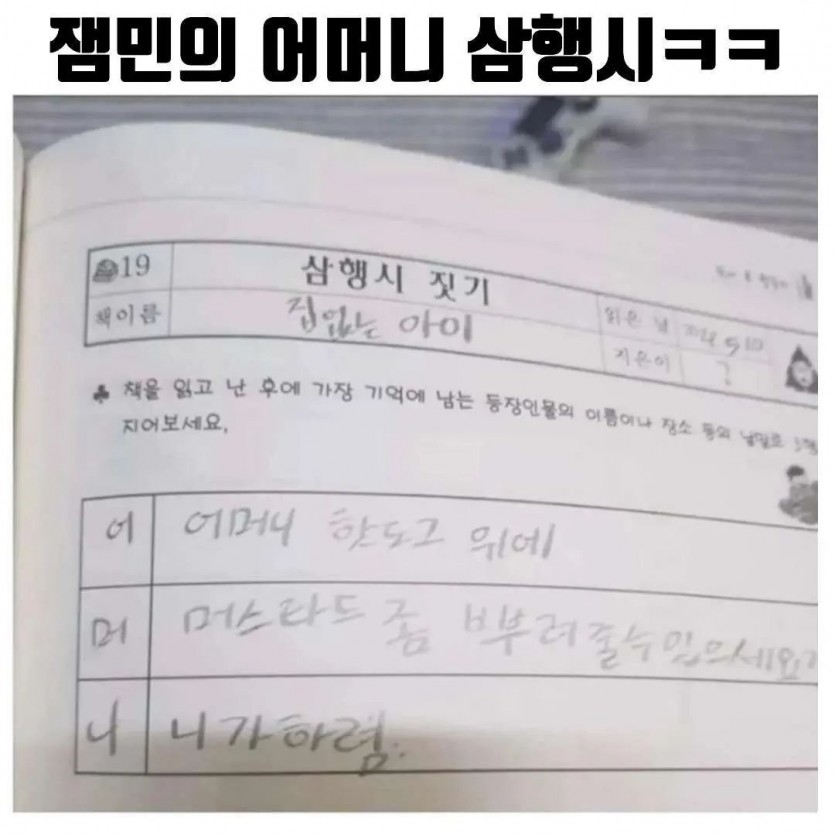 잼민의 어머니 삼행시ㅋㅋ
19 삼행시 짓기
책이름 집없는 아이 읽은 날 5 10
지은이 ?
♣ 책을 읽고 난 후에 가장 기억에 남는 등장인물의 이름이나 장소 등의 낱말로 3행
지어보세요.
어 어머니 핫도그 위에
머 머스타드 좀 ㅂ부려줄수있으세요?
니 니가하렴.